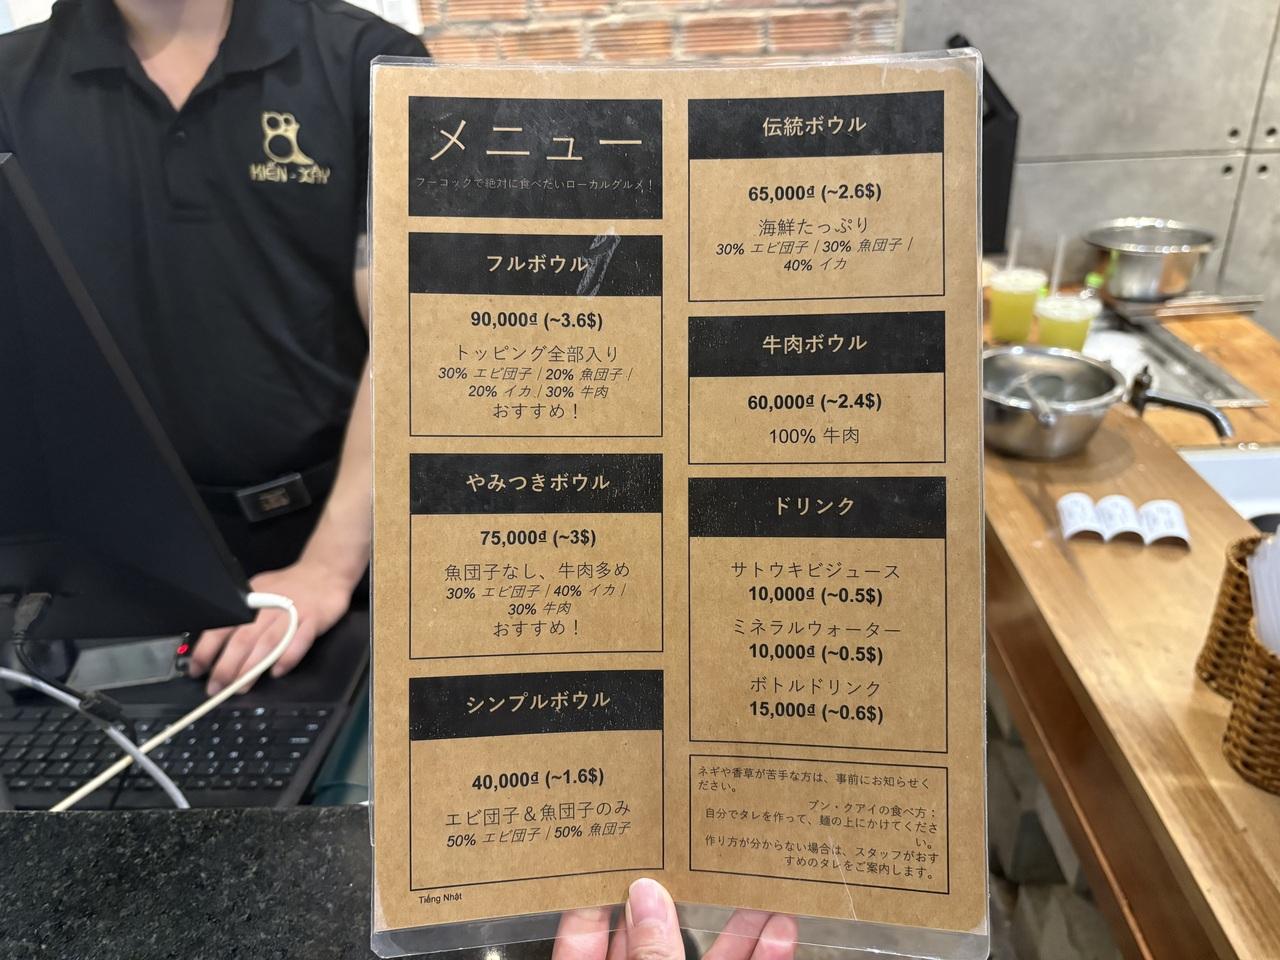 KIẾN - XÂY
メニュー
フーコックで絶対に食べたいローカルグルメ！
フルボウル
90,000₫ (~3.6$)
トッピング全部入り
30% エビ団子 | 20% 魚団子 |
20% イカ | 30% 牛肉
おすすめ！
やみつきボウル
75,000₫ (~3$)
魚団子なし、牛肉多め
30% エビ団子 | 40% イカ |
30% 牛肉
おすすめ！
シンプルボウル
40,000₫ (~1.6$)
エビ団子＆魚団子のみ
50% エビ団子 | 50% 魚団子
Tiếng Nhật
伝統ボウル
65,000₫ (~2.6$)
海鮮たっぷり
30% エビ団子 | 30% 魚団子 |
40% イカ
牛肉ボウル
60,000₫ (~2.4$)
100% 牛肉
ドリンク
サトウキビジュース
10,000₫ (~0.5$)
ミネラルウォーター
10,000₫ (~0.5$)
ボトルドリンク
15,000₫ (~0.6$)
ネギや香草が苦手な方は、事前にお知らせく
ださい。
ブン・クアイの食べ方：
自分でタレを作って、麺の上にかけてくださ
い。
作り方が分からない場合は、スタッフがおす
すめのタレをご案内します。